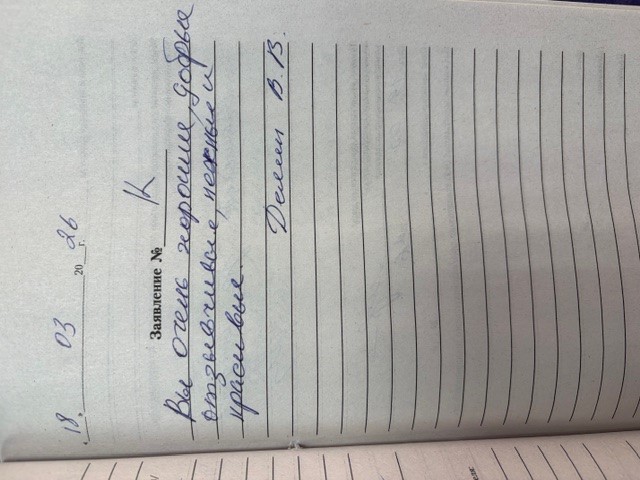 "18" 03 2026 г.
Заявление № К
Вы очень хорошие, добрые
отзывчивые, нежные и
красивые.
В.В.